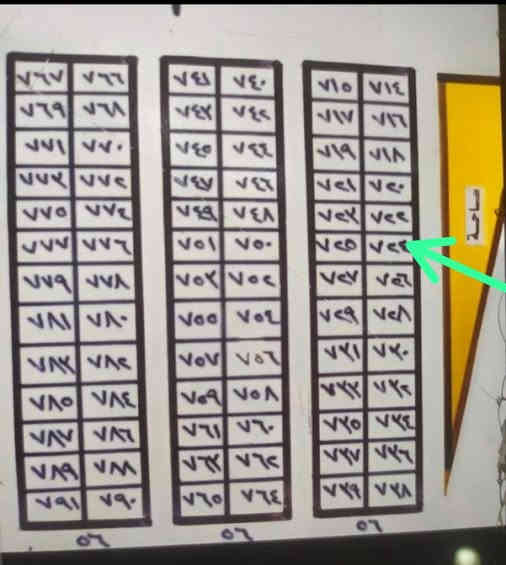 ٧١٤ ٧١٥
٧١٦ ٧١٧
٧١٨ ٧١٩
٧٢٠ ٧٢١
٧٢٢ ٧٢٣
٧٢٤ ٧٢٥
٧٢٦ ٧٢٧
٧٢٨ ٧٢٩
٧٣٠ ٧٣١
٧٣٢ ٧٣٣
٧٣٤ ٧٣٥
٧٣٦ ٧٣٧
٧٣٨ ٧٣٩
٥٦
٧٤٠ ٧٤١
٧٤٢ ٧٤٣
٧٤٤ ٧٤٥
٧٤٦ ٧٤٧
٧٤٨ ٧٤٩
٧٥٠ ٧٥١
٧٥٢ ٧٥٣
٧٥٤ ٧٥٥
٧٥٦ ٧٥٧
٧٥٨ ٧٥٩
٧٦٠ ٧٦١
٧٦٢ ٧٦٣
٧٦٤ ٧٦٥
٥٦
٧٦٦ ٧٦٧
٧٦٨ ٧٦٩
٧٧٠ ٧٧١
٧٧٢ ٧٧٣
٧٧٤ ٧٧٥
٧٧٦ ٧٧٧
٧٧٨ ٧٧٩
٧٨٠ ٧٨١
٧٨٢ ٧٨٣
٧٨٤ ٧٨٥
٧٨٦ ٧٨٧
٧٨٨ ٧٨٩
٧٩٠ ٧٩١
٥٦
ساحة